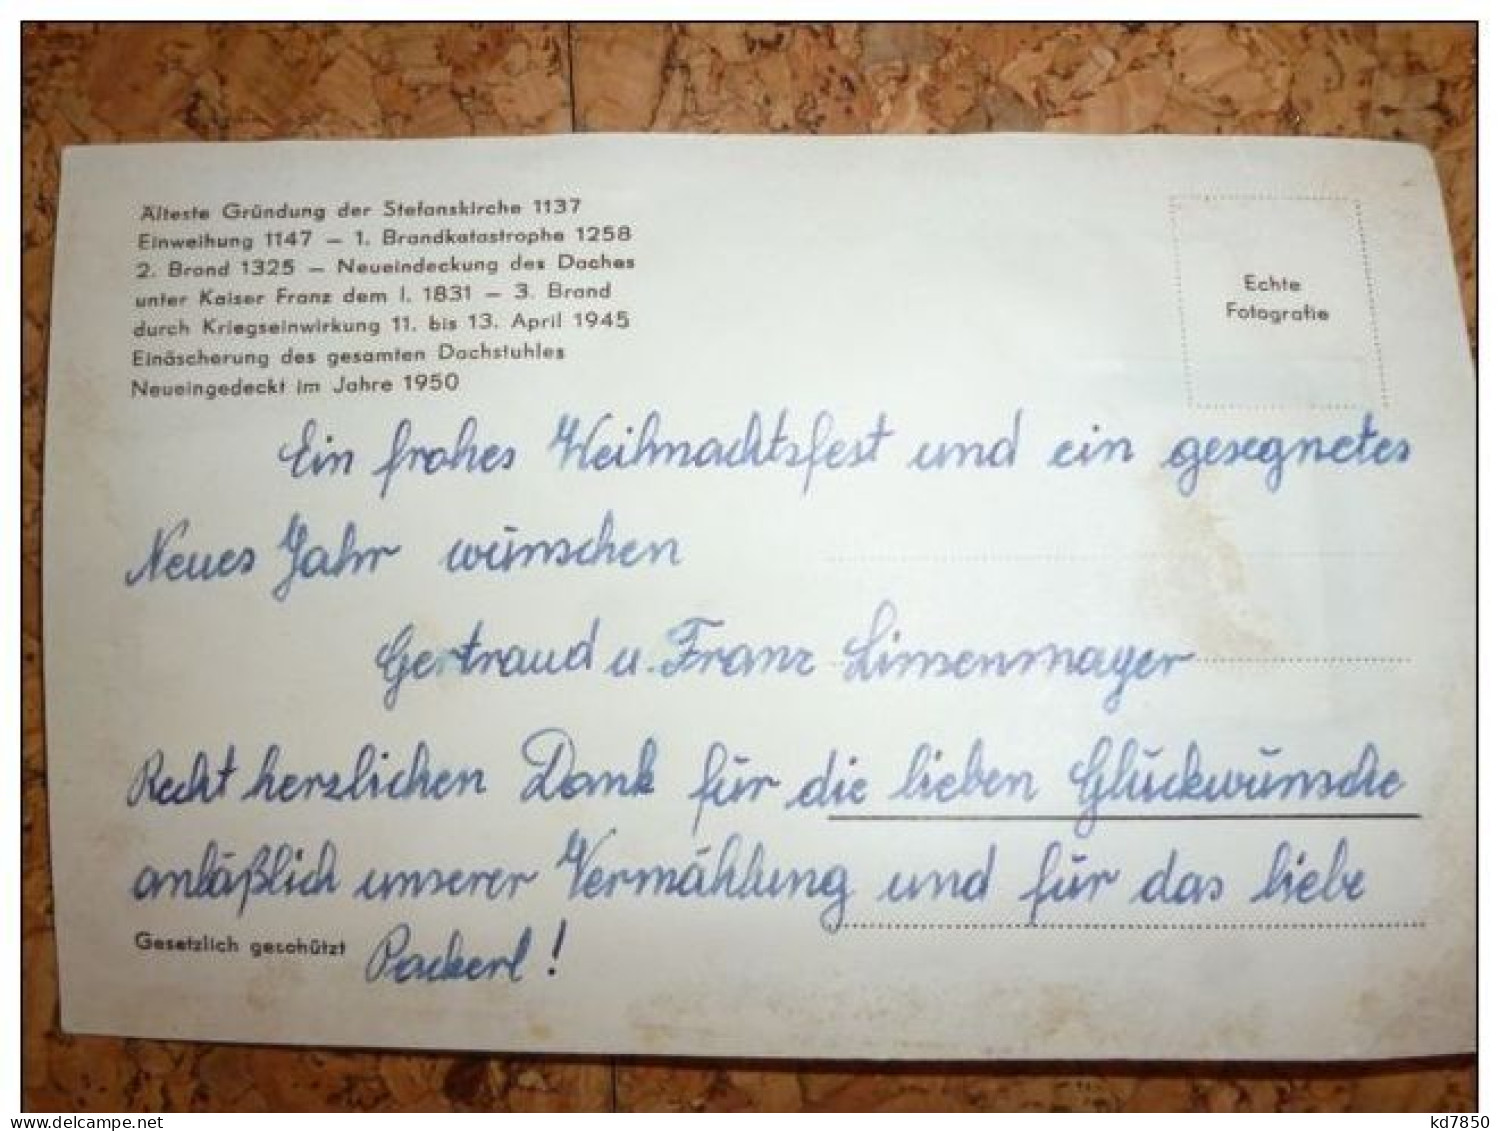 Älteste Gründung der Stefanskirche 1137
Einweihung 1147 – 1. Brandkatastrophe 1258
2. Brand 1325 – Neueindeckung des Daches
unter Kaiser Franz dem I. 1831 – 3. Brand
durch Kriegseinwirkung 11. bis 13. April 1945
Einäscherung des gesamten Dachstuhles
Neueingedeckt im Jahre 1950
Echte
Fotografie
Ein frohes Weihnachtsfest und ein gesegnetes
Neues Jahr wünschen
Gertraud u. Franz Linsenmayer
Recht herzlichen Dank für die lieben Glückwünsche
anläßlich unserer Vermählung und für das liebe
Packerl!
Gesetzlich geschützt
delcampe.net
kd7850